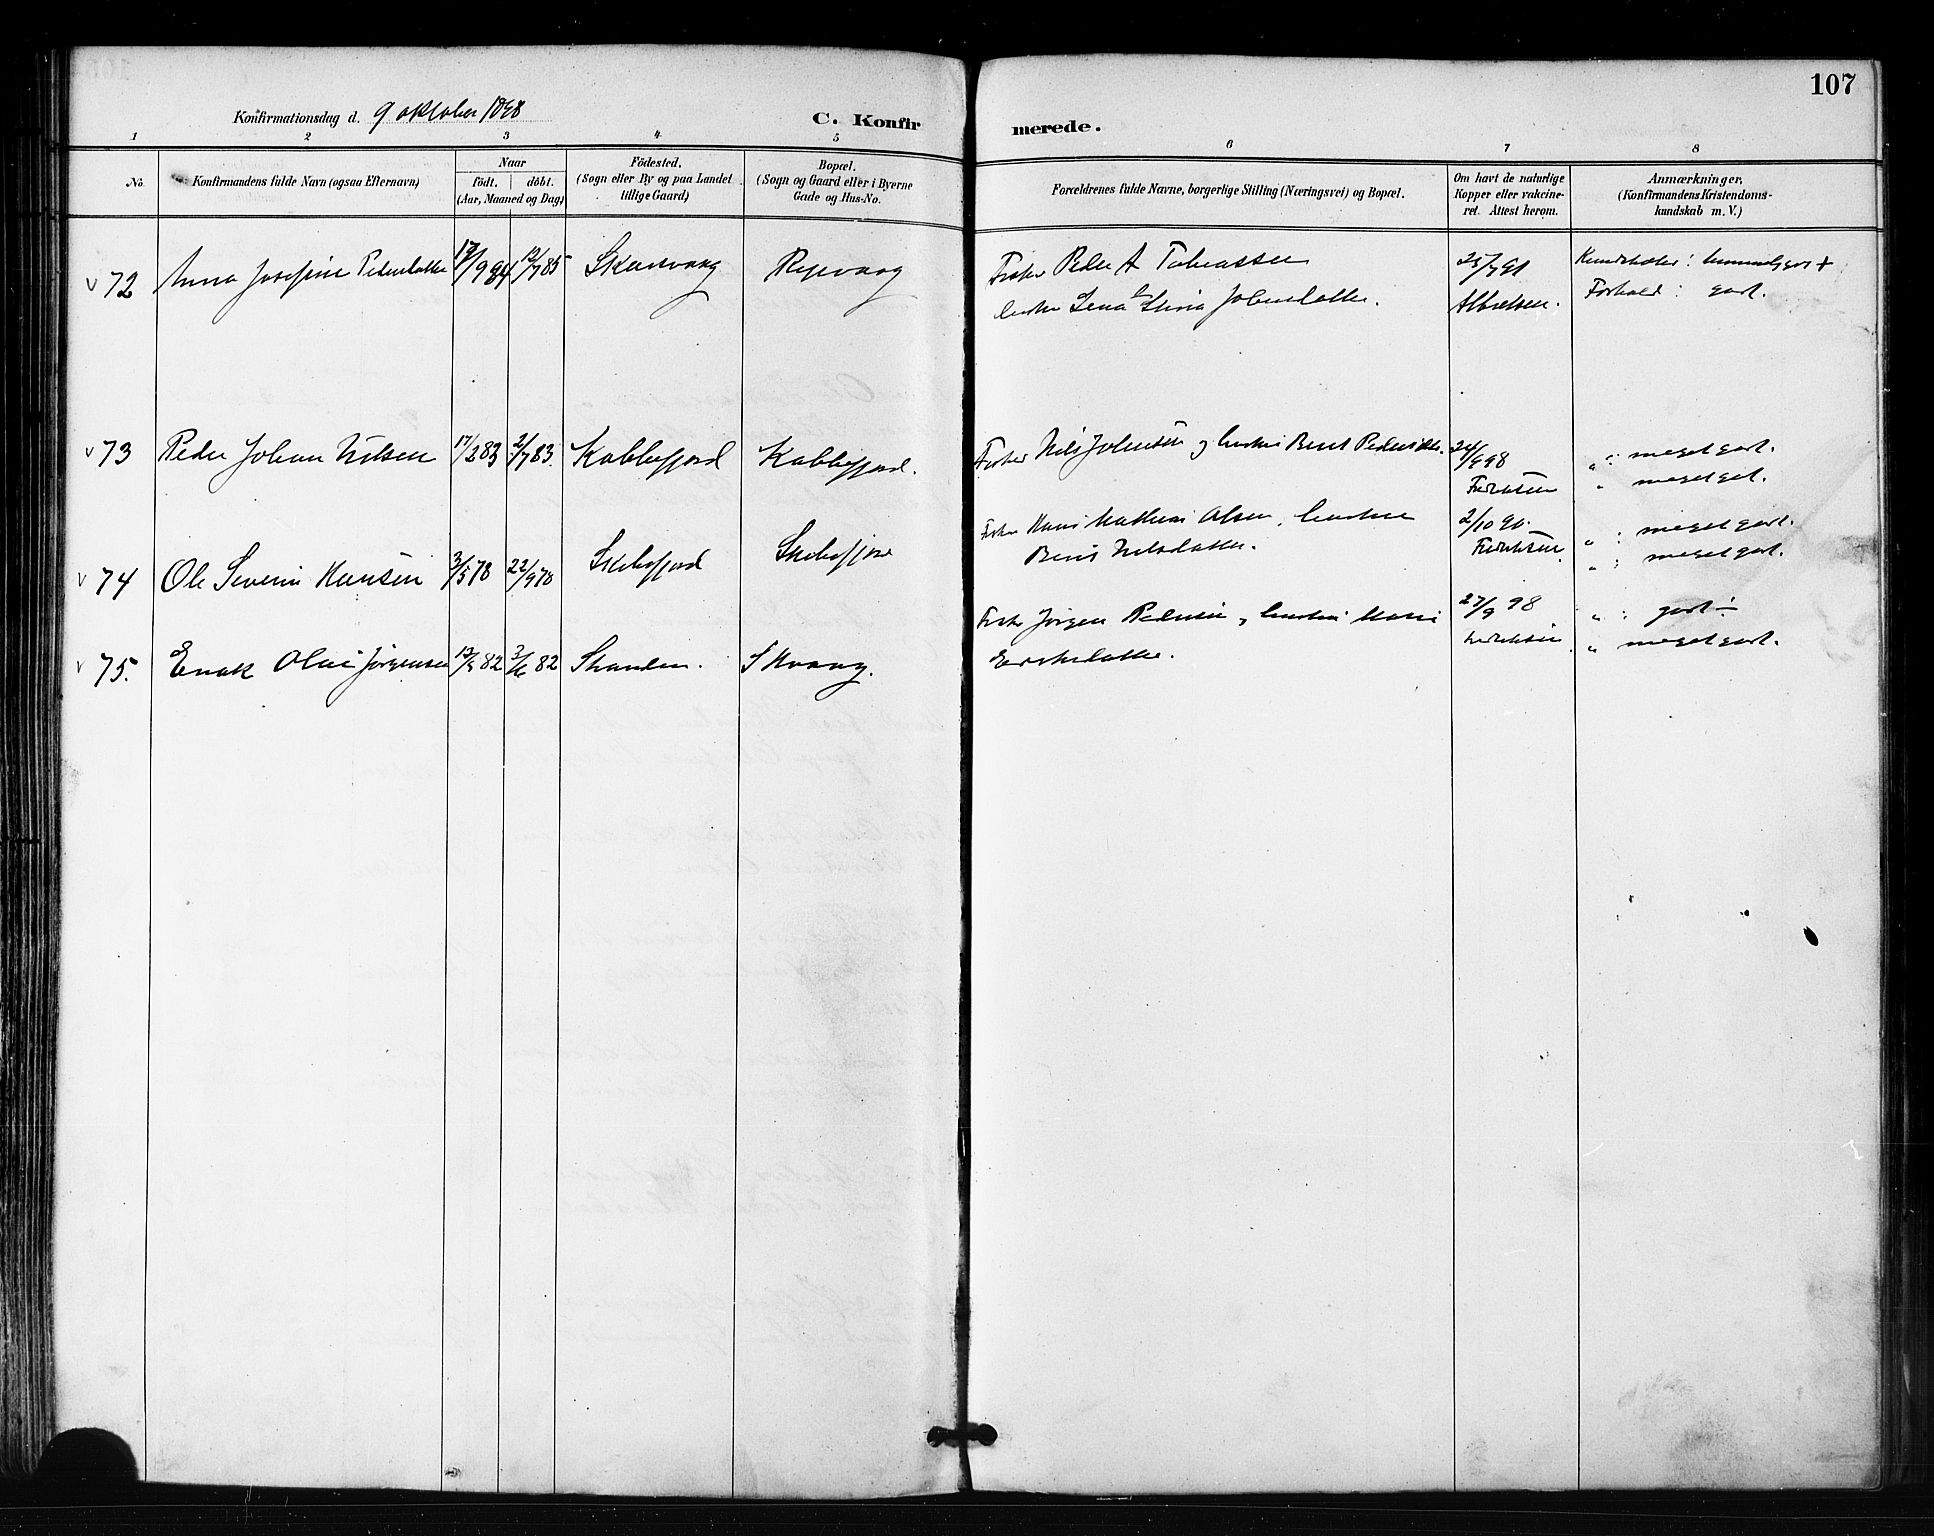 107
Konfirmationsdag d. 9 oktober 1898
C. Konfirmerede.
1 2 3 4 5 6 7 8
No.
Konfirmandens fulde Navn (ogsaa Efternavn)
Naar
födt. döbt.
(Aar, Maaned og Dag)
Födested.
(Sogn eller By og paa Landet
tillige Gaard)
Bopæl.
(Sogn og Gaard eller i Byerne
Gade og Hus-No.
Forældrenes fulde Navne, borgerlige Stilling (Næringsvei) og Bopæl.
Om havt de naturlige
Kopper eller vakcine-
ret. Attest herom.
Anmærkninger,
(Konfirmandens Kristendoms-
kundskab m. V.)
v 72 Anna Josefine Pedersdatter 17/9 84 12/7 85 Skarsvaag Repvaag
Fisker Peder A Tobiassen
Lena Stina Johnsdatter.
25/7 91
Albretsen.
Kundskaber:
Forhold: godt.
v 73 Peder Johan Nilsen 17/2 83 2/7 83. Kobbefjord Kobbefjord.
Fisker Nils Johnsen og hustru Berit Pedersdtr.
24/9 98
Fredriksen
" : meget godt.
" meget godt.
v 74 Ole Severin Hansen 3/5 78 22/9 78 Skibsfjord Skibsfjord
Fisker Hans Mathias Olsen, hustru
Berit Nilsdatter.
2/10 90.
Fredriksen.
" : meget godt.
" : meget godt.
v 75. Enok Olai Jörgensen 13/3 82 3/6 82 Stranden. Skvaag.
Fisker Jörgen Pedersen, hustru
Eriksdatter.
27/9 98
Fredriksen
" : godt ÷
" meget godt.